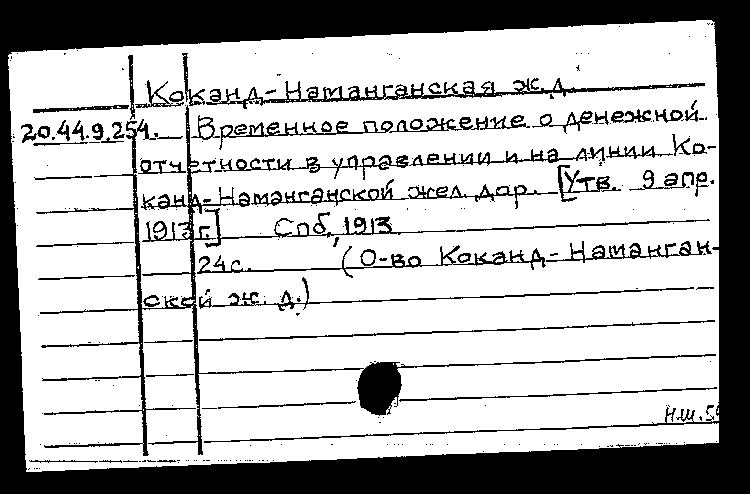 Коканд-Наманганская ж.д.
20.44.9.254. Временное положение о денежной
отчетности в управлении и на линии Ко-
канд-Наманганской жел. дор. [Утв. 9 апр.
1913 г.] Спб, 1913.
24 с. (О-во Коканд-Наманган-
ской ж. д.)
Н.ш.